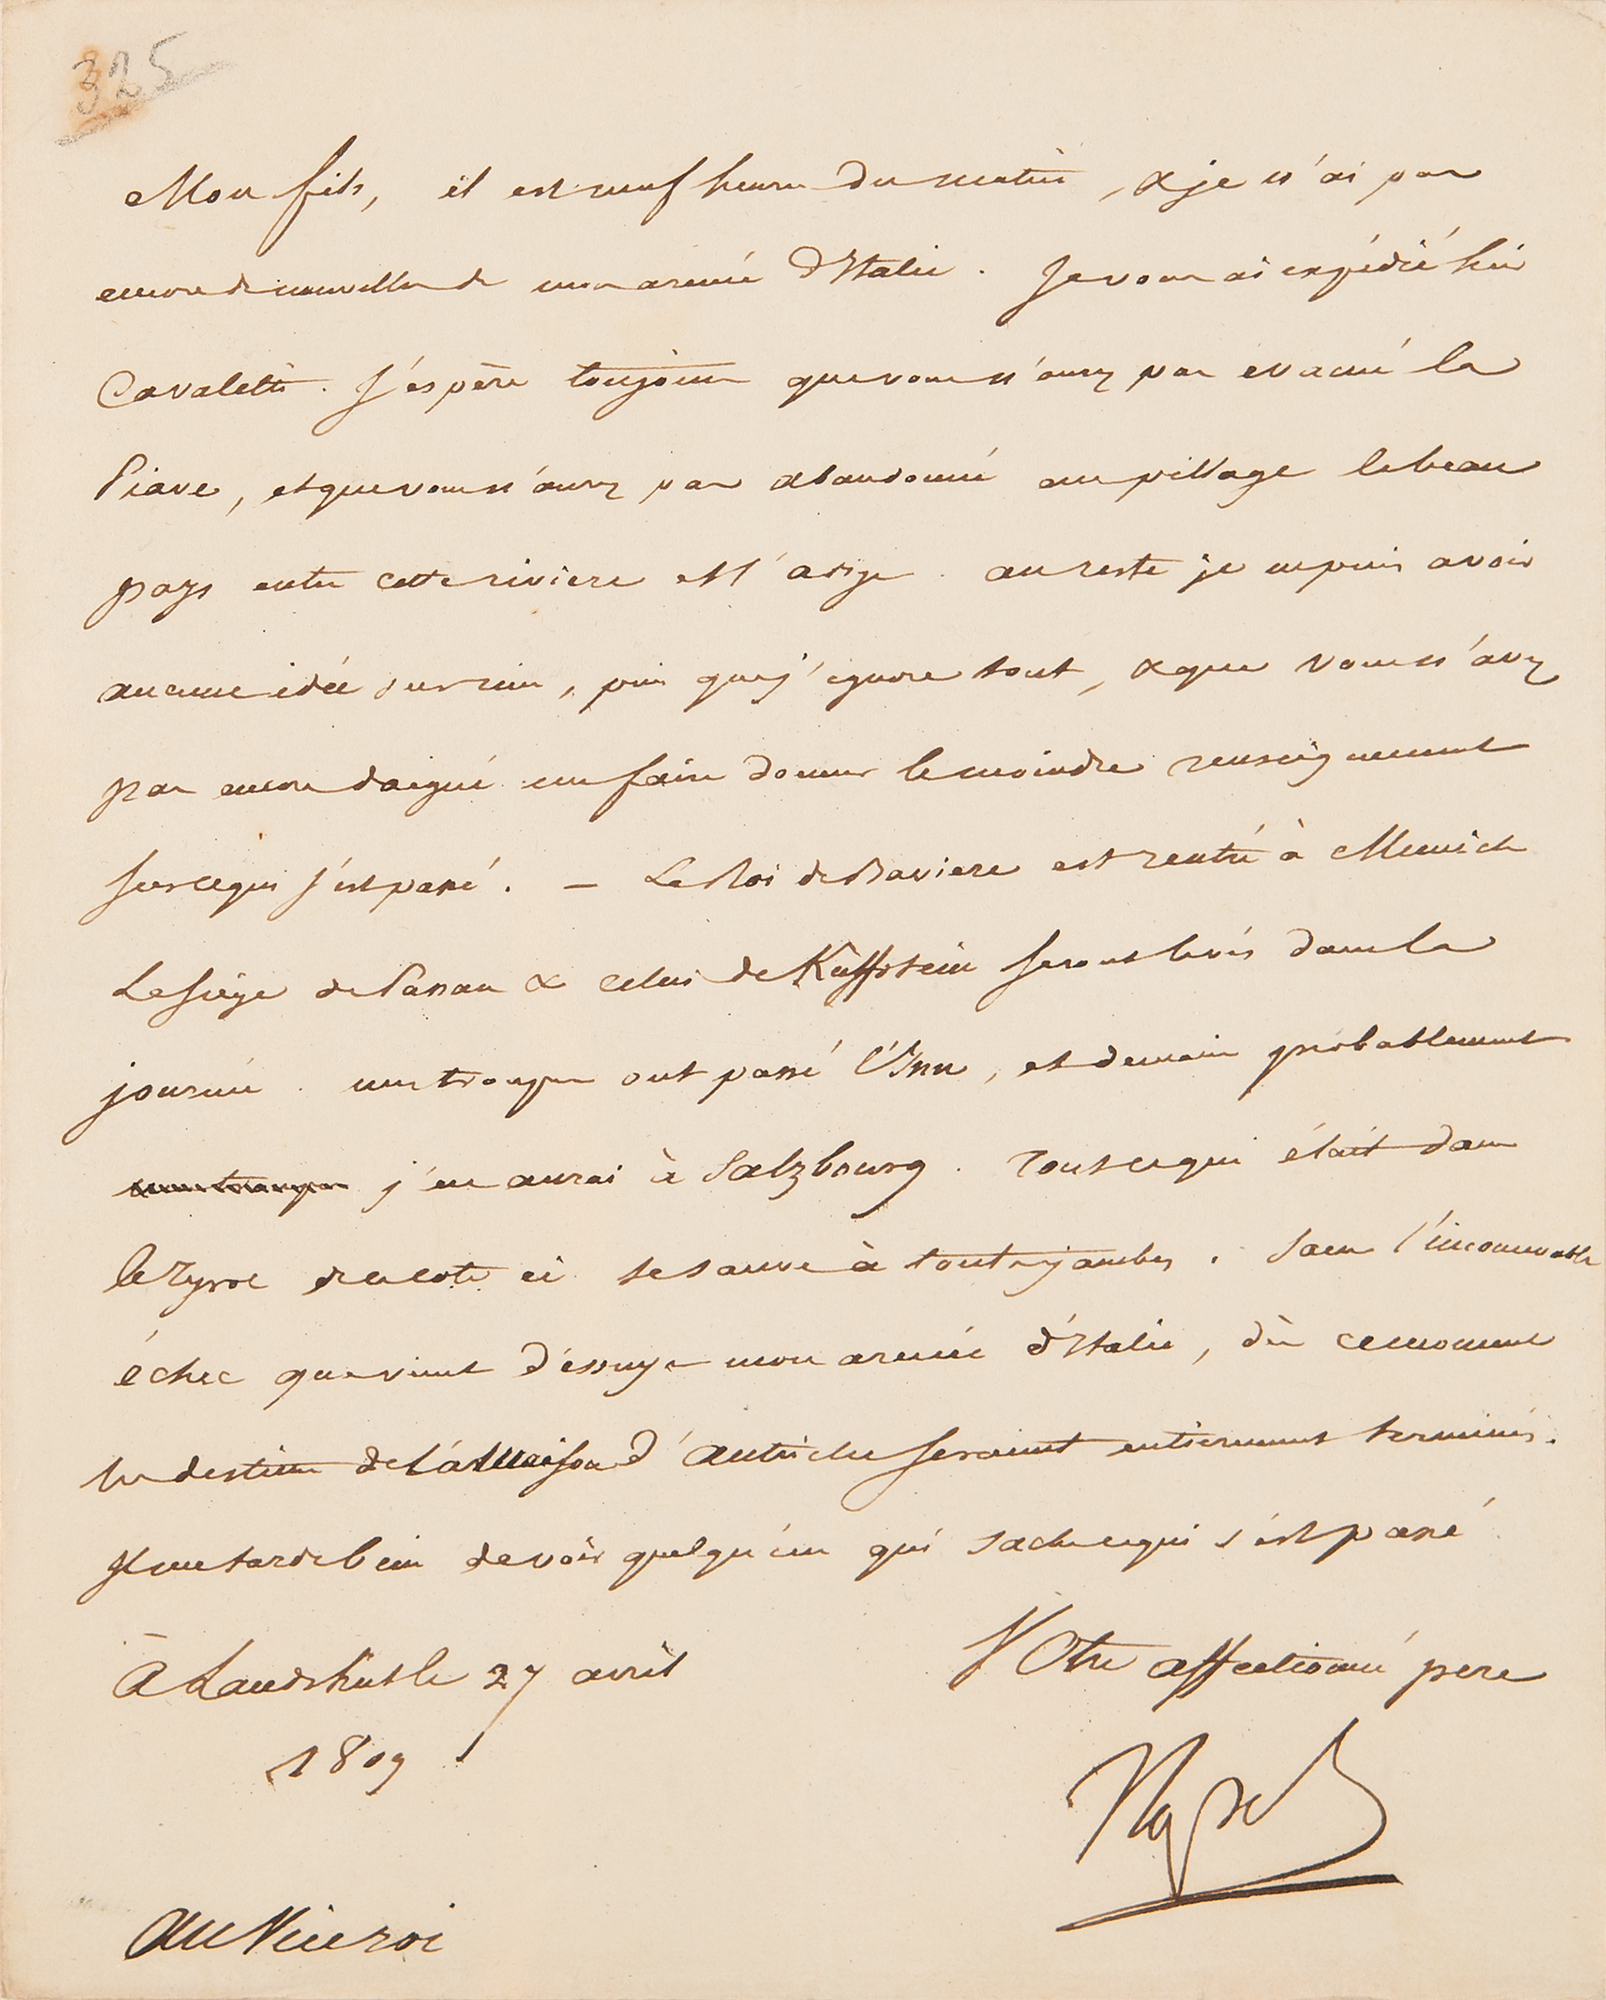 325
Mon fils, il est neuf heures du matin, & je n'ai pas
encore de nouvelles de mon armée d'Italie. Je vous ai expédié hier
Cavaletti. J'espère toujours que vous n'aurez pas evacué la
Piave, et que vous n'aurez pas abandonné au pillage le beau
pays entre cette riviere et l'adige. au reste je ne puis avoir
aucune idée sur rien, puis que j'ignore tout, & que vous n'avez
pas encore daigné me faire donner le moindre renseignement
sur ce qui s'est passé. — Le Roi de Baviere est rentré à Munich
Le siège de Passau & celui de Kuffstein seront levés dans la
journée. mes troupes ont passé l'Inn, et demain probablement
mes troupes j'en aurai à Salzbourg. Tout ce qui était dans
le Tyrol de ce coté ci se sauve à toutes jambes. Sans l'inconcevable
échec que vient d'éssuyer mon armée d'Italie, dès ce moment
les destins de la Maison d'Autriche seraient entierement terminés.
Il me tarde bien de voir quelqu'un qui sache ce qui s'est passé
Votre affectionné pere
à Landshut le 27 avril
1809.
Napol
Au Vice roi